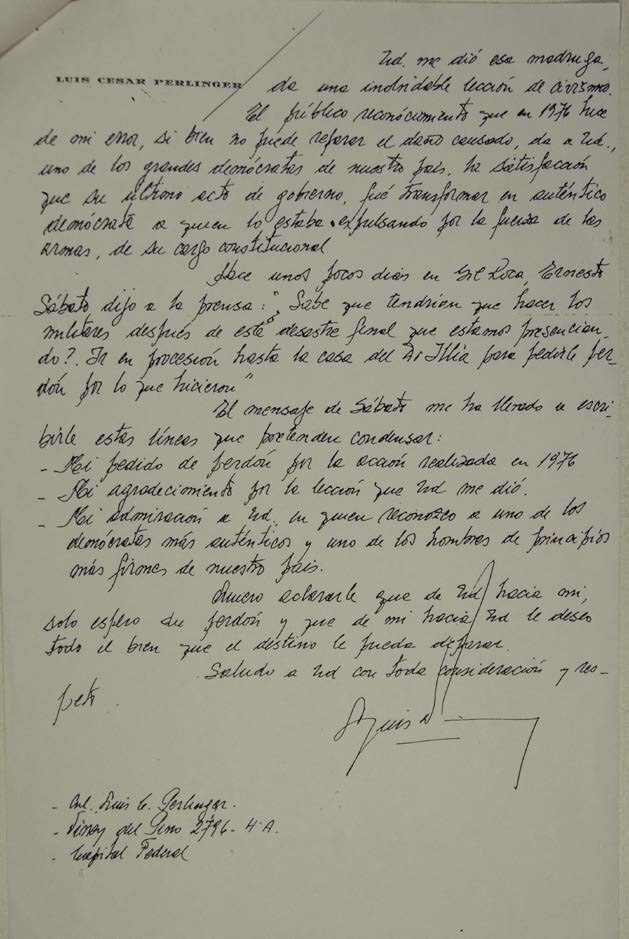 LUIS CESAR PERLINGER
Ud. me dió esa madruga-
da una inolvidable lección de civismo.
El público reconocimiento que en 1976 hice
de mi error, si bien no puede reparar el daño causado, da a Ud.,
uno de los grandes demócratas de nuestro país, la satisfacción
que su último acto de gobierno, fué transformar en auténtico
demócrata a quien lo estaba expulsando por la fuerza de las
armas, de su cargo constitucional
Hace unos pocos días en Gil Roca, Ernesto
Sábato dijo a la prensa: "Sabe que tendrían que hacer los
militares después de este desastre final que estamos presencian-
do?. Ir en procesión hasta la casa del Dr Illia para pedirle per-
dón por lo que hicieron"
El mensaje de Sábato me ha llevado a escri-
birle estas líneas que pretenden condensar:
- Mi pedido de perdón por la acción realizada en 1976
- Mi agradecimiento por la lección que Ud me dió.
- Mi admiración a Ud, en quien reconozco a uno de los
demócratas más auténticos y uno de los hombres de principios
más firmes de nuestro país.
Quiero aclararle que de Ud hacia mi,
solo espero su perdón y que de mi hacia Ud le deseo
todo el bien que el destino le pueda deparar.
Saludo a Ud con toda consideración y res-
peto
- Cnl. Luis C. Perlinger.
- Virrey del Pino 2796 - 4º A.
- Capital Federal